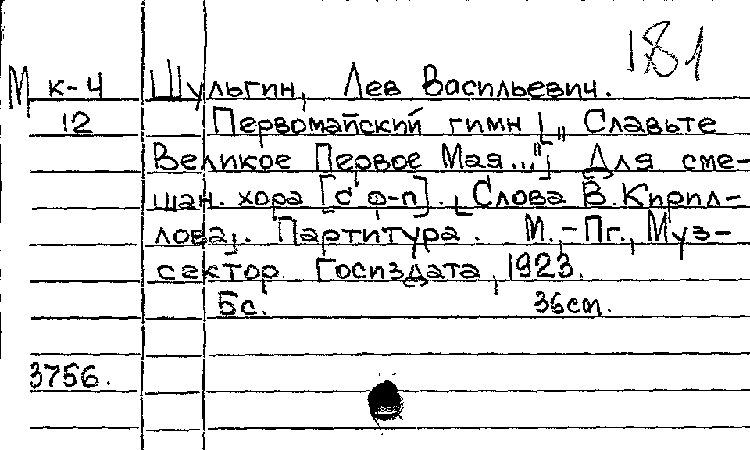 181
М к-4 Шульгин, Лев Васильевич.
12 Первомайский гимн [„Славьте
Великое Первое Мая..."] Для сме-
шан. хора [с ф-п]. [Слова В. Кирил-
лова]. Партитура. М.-Пг., Муз-
сектор Госиздата, 1923.
5с. 36см.
3756.